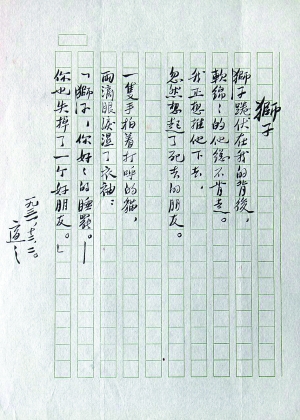 獅子
獅子蹲伏在我的背後，
軟綿〻的他總不肯走。
我正想推他下去，
忽然想起了死去的朋友。
一隻手拍着打呼的貓，
兩滴眼淚濕了衣袖：
「獅子，你好〻的睡罷。——
你也失掉了一個好朋友。」
一九三一、十二、二。
適之